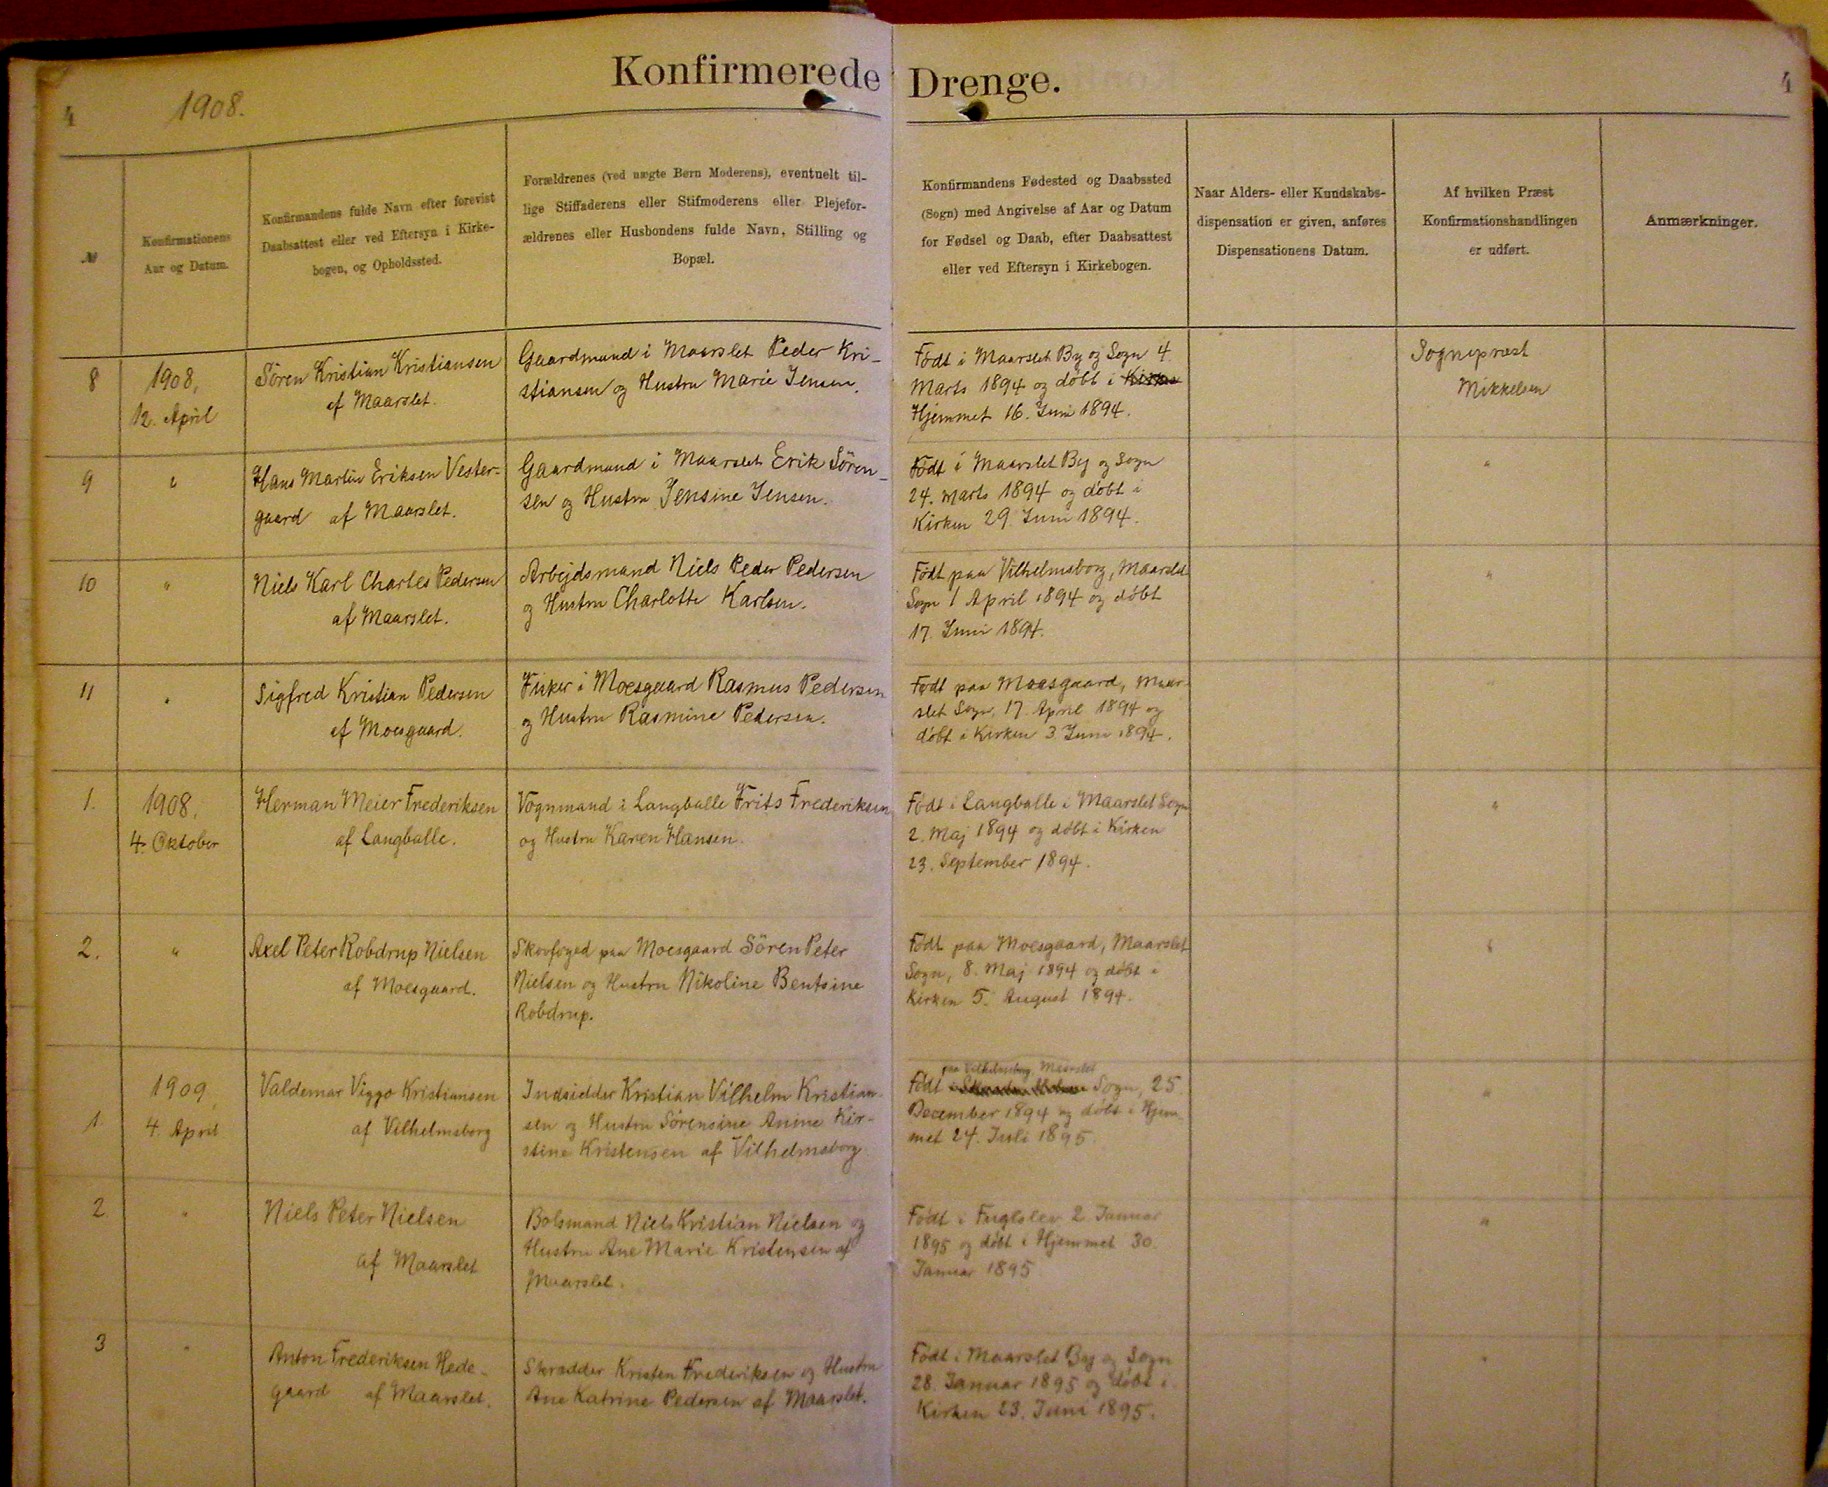 Konfirmerede Drenge.
4
1908.
4
№
Konfirmationens
Aar og Datum.
Konfirmandens fulde Navn efter forevist
Daabsattest eller ved Eftersyn i Kirke-
bogen, og Opholdssted.
Forældrenes (ved uægte Børn Moderens), eventuelt til-
lige Stiffaderens eller Stifmoderens eller Plejefor-
ældrenes eller Husbondens fulde Navn, Stilling og
Bopæl.
Konfirmandens Fødested og Daabssted
(Sogn) med Angivelse af Aar og Datum
for Fødsel og Daab, efter Daabsattest
eller ved Eftersyn i Kirkebogen.
Naar Alders- eller Kundskabs-
dispensation er given, anføres
Dispensationens Datum.
Af hvilken Præst
Konfirmationshandlingen
er udført.
Anmærkninger.
8
1908,
12. April
Sören Kristian Kristiansen
af Maarslet.
Gaardmand i Maarslet Peder Kri-
stiansen og Hustru Marie Jensen.
Født i Maarslet By og Sogn 4
Marts 1894 og døbt i Kirken
Hjemmet 16. Juni 1894.
Sognepræst
Mikkelsen
9
"
Hans Martin Eriksen Vester-
gaard af Maarslet.
Gaardmand i Maarslet Erik Sören-
sen og Hustru Jensine Jensen.
Født i Maarslet By og Sogn
24. Marts 1894 og døbt i
Kirken 29. Juni 1894.
"
10
"
Niels Karl Charles Pedersen
af Maarslet.
Arbejdsmand Niels Peder Pedersen
og Hustru Charlotte Karlsen.
Født paa Vilhelmsborg, Maarslet
Sogn 1 April 1894 og døbt
17. Juni 1894.
"
11
"
Sigfred Kristian Pedersen
af Moesgaard.
Fisker i Moesgaard Rasmus Pedersen
og Hustru Rasmine Pedersen.
Født paa Moesgaard, Maar-
slet Sogn, 17. April 1894 og
døbt i Kirken 3 Juni 1894.
"
1.
1908,
4. Oktober
Herman Meier Frederiksen
af Langballe.
Vognmand i Langballe Frits Frederiksen
og Hustru Karen Hansen.
Født i Langballe i Maarslet Sogn
2. Maj 1894 og døbt i Kirken
23. September 1894.
"
2.
"
Axel Peter Robdrup Nielsen
af Moesgaard.
Skovfoged paa Moesgaard Sören Peter
Nielsen og Hustru Nikoline Bentsine
Robdrup.
Født paa Moesgaard, Maarslet
Sogn, 8. Maj 1894 og døbt i
Kirken 5. August 1894.
"
1.
1909
4. April
Valdemar Viggo Kristiansen
af Vilhelmsborg
Indsidder Kristian Vilhelm Kristian-
sen og Hustru Sörensine Anine Kir-
stine Kristensen af Vilhelmsborg
paa Vilhelmsborg, Maarslet
Født i Sogn, 25
December 1894 og døbt i Hjem-
met 24. Juli 1895.
"
2.
"
Niels Peter Nielsen
af Maarslet
Bolsmand Niels Kristian Nielsen og
Hustru Ane Marie Kristensen af
Maarslet.
Født i Fuglslev 2. Januar
1895 og døbt i Hjemmet 30.
Januar 1895
"
3
"
Anton Frederiksen Hede-
gaard af Maarslet.
Skrædder Kristen Frederiksen og Hustru
Ane Katrine Pedersen af Maarslet.
Født i Maarslet By og Sogn
28. Januar 1895 og døbt i
Kirken 23. Juni 1895.
"